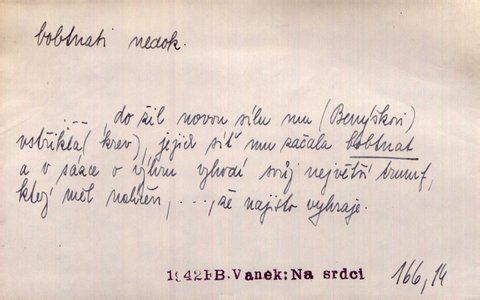 bobtnati nedok.
..., do žil novou sílu mu (Benýškovi)
vstříkla (krev), jejich síť mu začala bobtnat
a v sázce o výhru vyhodí svůj největší trumf,
který měl , ..., že najisto vyhraje.
1942 B.Vanek: Na srdci 166,14